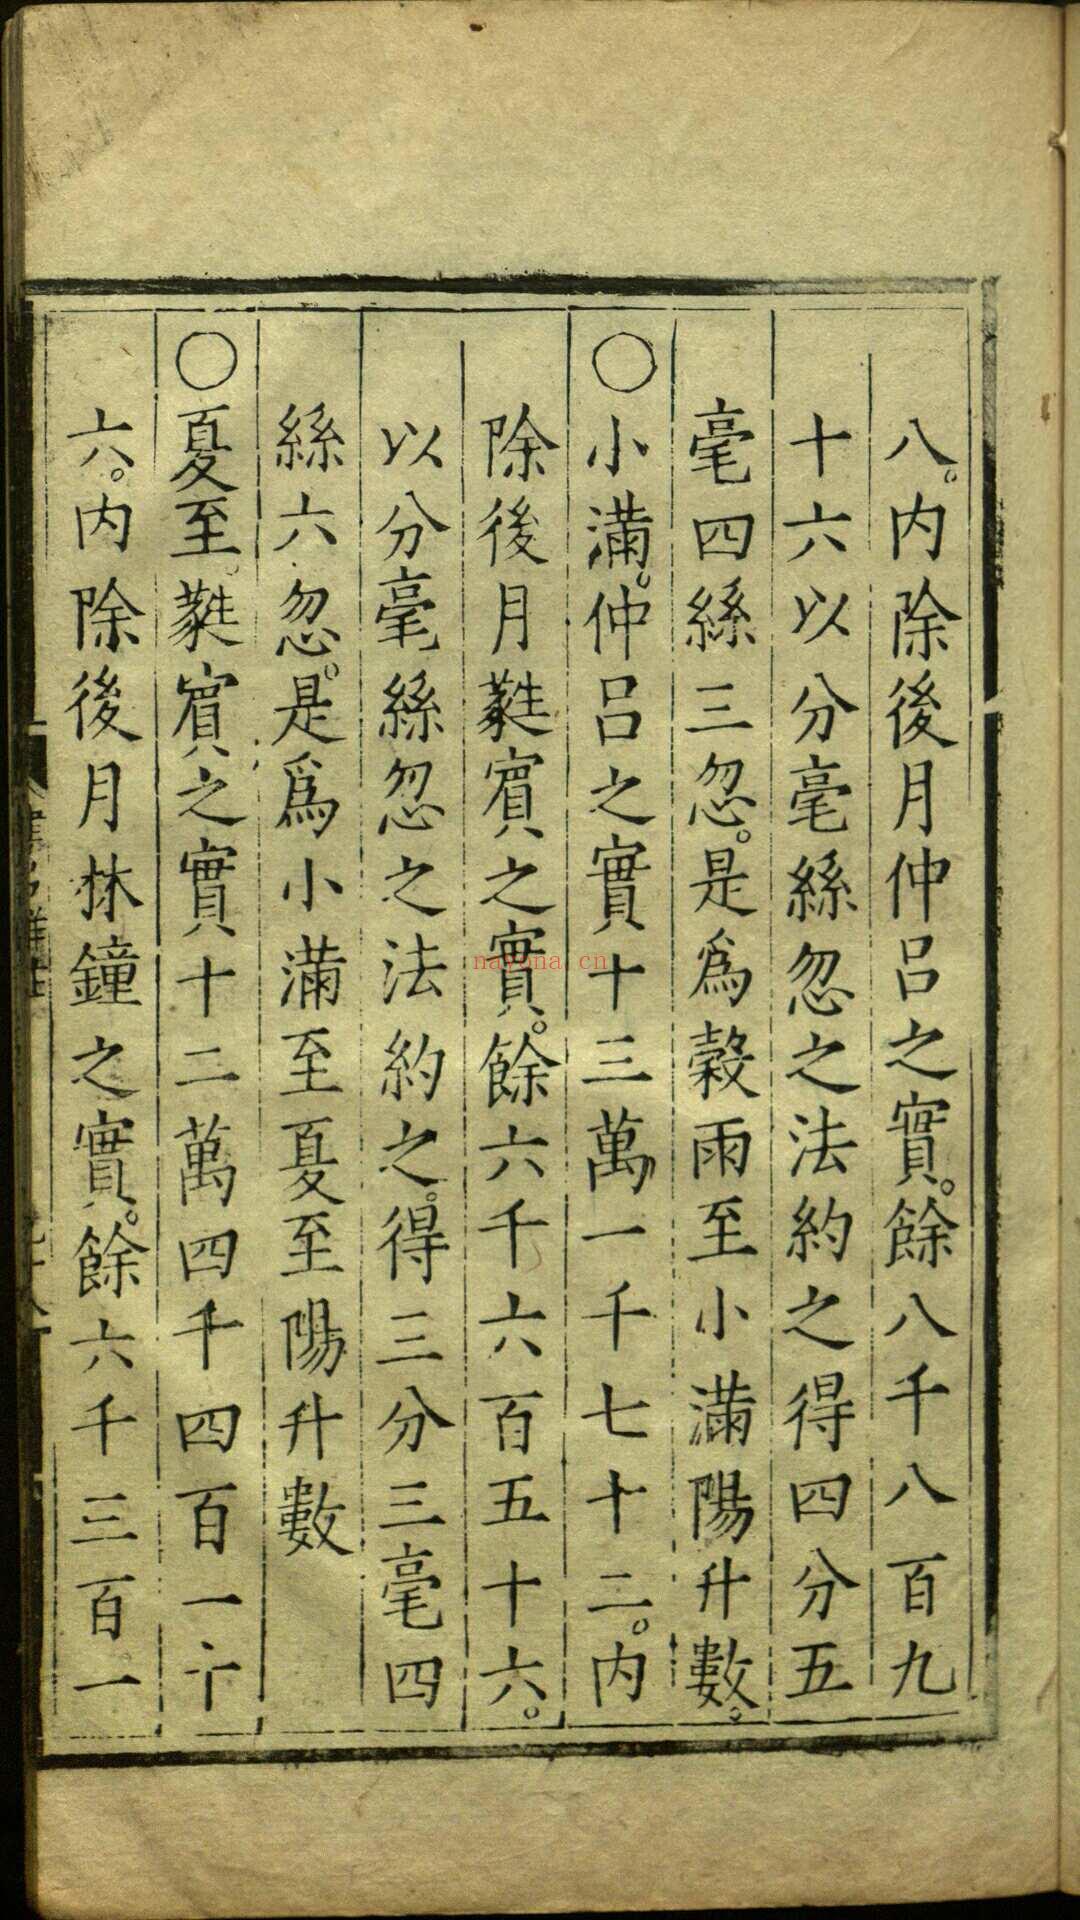 八。内除後月仲呂之實。餘八千八百九
十六以分毫絲忽之法約之得四分五
毫四絲三忽。是爲穀雨至小滿陽升數。
○小滿。仲呂之實十三萬一千七十二。内
除後月蕤賔之實。餘六千六百五十六。
以分毫絲忽之法約之。得三分三毫四
絲六忽。是爲小滿至夏至陽升數
○夏至。蕤賔之實十二萬四千四百一十
六。内除後月林鐘之實。餘六千三百一
nayona.cn